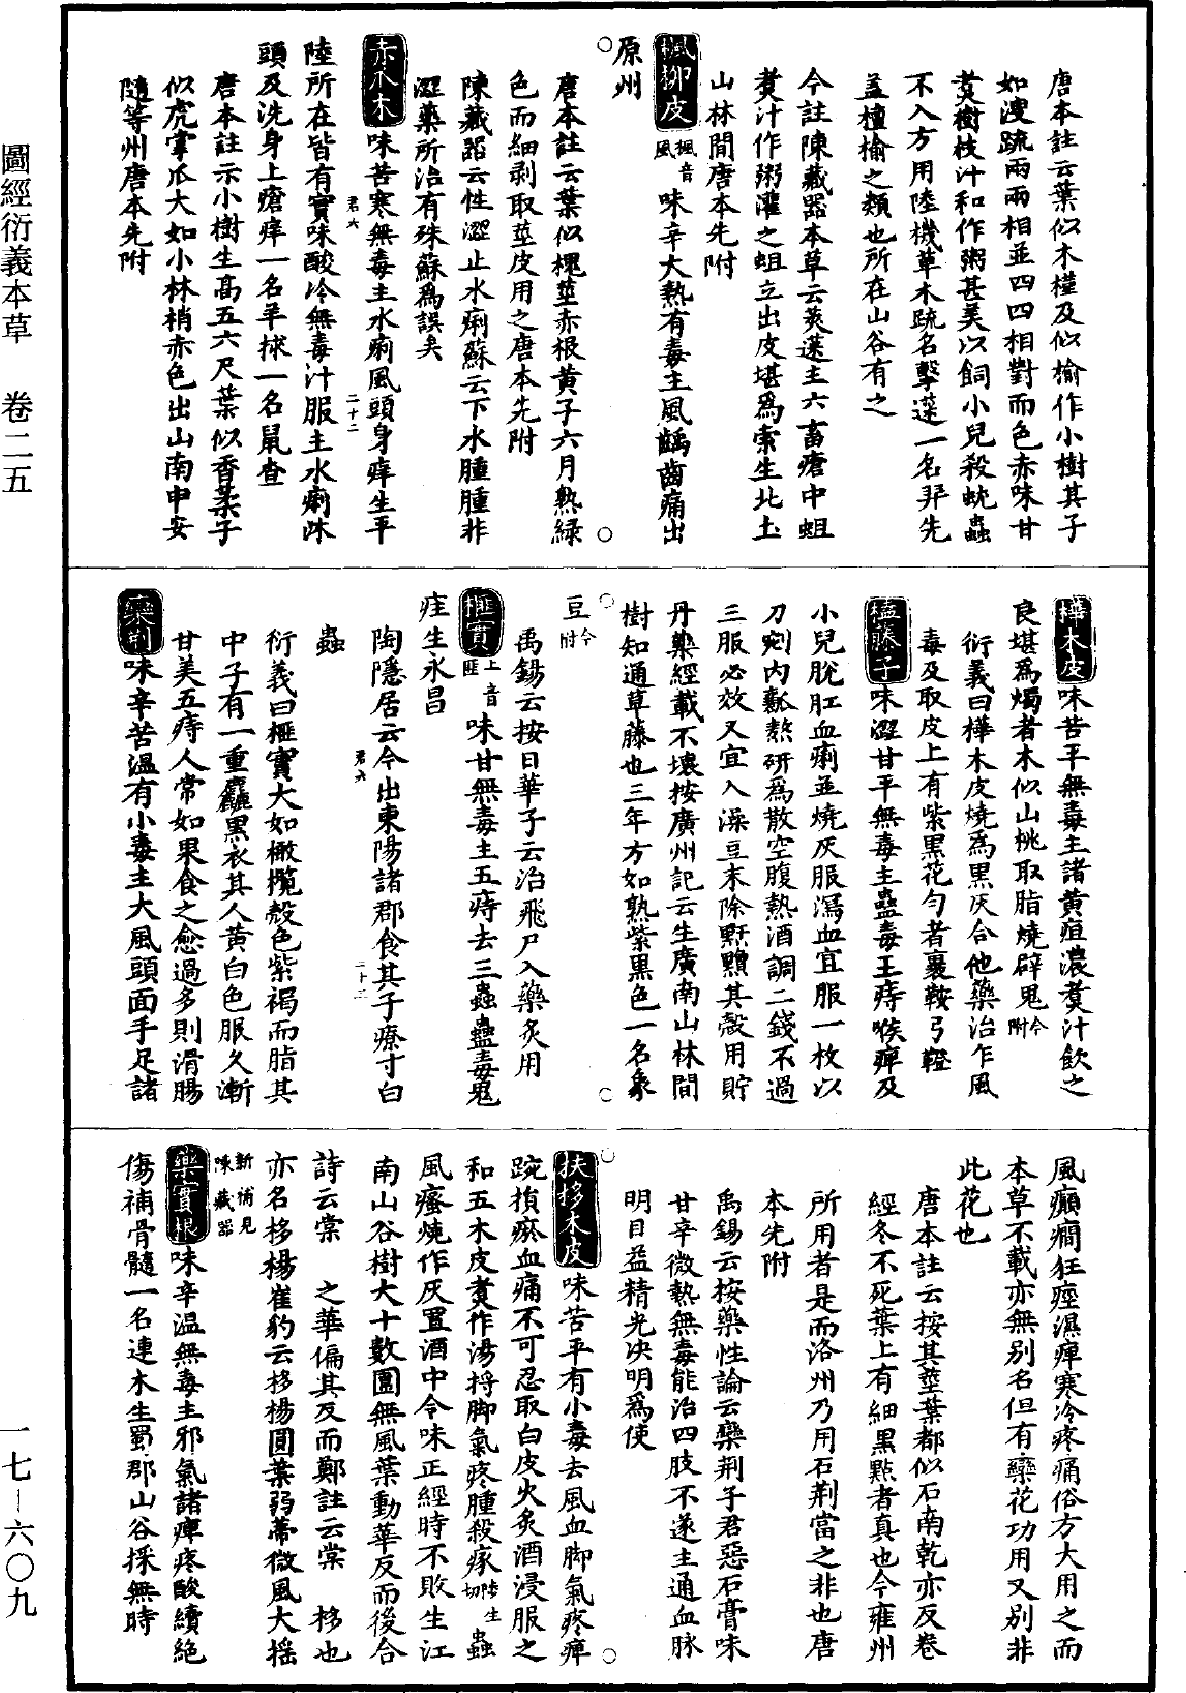 圖經衍義本草　卷二五
一七—六〇九
唐本註云葉似木槿及似榆作小樹其子
如溲疏兩兩相並四四相對而色赤味甘
煑樹枝汁和作粥甚美以飼小兒殺蚘蟲
不入方用陸機草木疏名擊蒾一名羿先
盖檀榆之類也所在山谷有之
今註陳藏器本草云莢蒾主六畜瘡中蛆
煑汁作粥灌之蛆立出皮堪爲索生北土
山林間唐本先附
楓柳皮楓音風味辛大熱有毒主風齲齒痛出
原州
唐本註云葉似槐莖赤根黄子六月熟綠
色而細剥取莖皮用之唐本先附
陳藏器云性澀止水痢蘇云下水腫腫非
澀藥所治有殊蘇爲誤矣
赤爪木味苦寒無毒主水痢風頭身痒生平
陸所在皆有實味酸冷無毒汁服主水痢沐
頭及洗身上瘡痒一名羊梂一名鼠查
唐本註示小樹生高五六尺葉似香葇子
似虎掌爪大如小林檎赤色出山南申安
隨等州唐本先附
君六
二十二
樺木皮味苦平無毒主諸黄疸濃煑汁飲之
良堪爲燭者木似山桃取脂燒辟鬼今附
衍義曰樺木皮燒爲黒灰合他藥治乍風
毒及取皮上有紫黒花勻者裹鞍弓鐙
榼藤子味澀甘平無毒主蠱毒五痔喉痺及
小兒脫肛血痢並燒灰服瀉血宜服一枚以
刀剜内瓤熬研爲散空腹熱酒調二錢不過
三服必效又宜入澡豆末除䵟黷其殼用貯
丹藥經載不壊按廣州記云生廣南山林間
樹如通草藤也三年方如熟紫黒色一名象
豆今附
禹錫云按日華子云治飛尸入藥炙用
榧實上音匪味甘無毒主五痔去三蟲蠱毒鬼
疰生永昌
陶隱居云今出東陽諸郡食其子療寸白
蟲
君六
二十三
衍義曰榧實大如橄欖殼色紫褐而脂其
中子有一重麤黒衣其人黄白色服久漸
甘美五痔人常如果食之愈過多則滑腸
欒荆味辛苦温有小毒主大風頭面手足諸
風癲癇狂痙濕痺寒冷疼痛俗方大用之而
本草不載亦無别名但有欒花功用又别非
此花也
唐本註云按其莖葉都似石南乾亦反卷
經冬不死葉上有細黒點者真也今雍州
所用者是而洛州乃用石荆當之非也唐
本先附
禹錫云按藥性論云欒荆子君惡石膏味
甘辛微熱無毒能治四肢不遂主通血脉
明目益精光决明爲使
扶栘木皮味苦平有小毒去風血脚氣疼痺
踠損瘀血痛不可忍取白皮火炙酒浸服之
和五木皮煑作湯捋脚氣疼腫殺瘃陟生切蟲
風瘙燒作灰置酒中令味正經時不敗生江
南山谷樹大十數圍無風葉動華反而後合
詩云棠　之華偏其反而鄭註云棠　栘也
亦名栘楊崔豹云栘楊圓葉弱蒂微風大摇
新補見
陳藏器
藥實根味辛温無毒主邪氣諸痺疼酸續絶
傷補骨髓一名連木生蜀郡山谷採無時